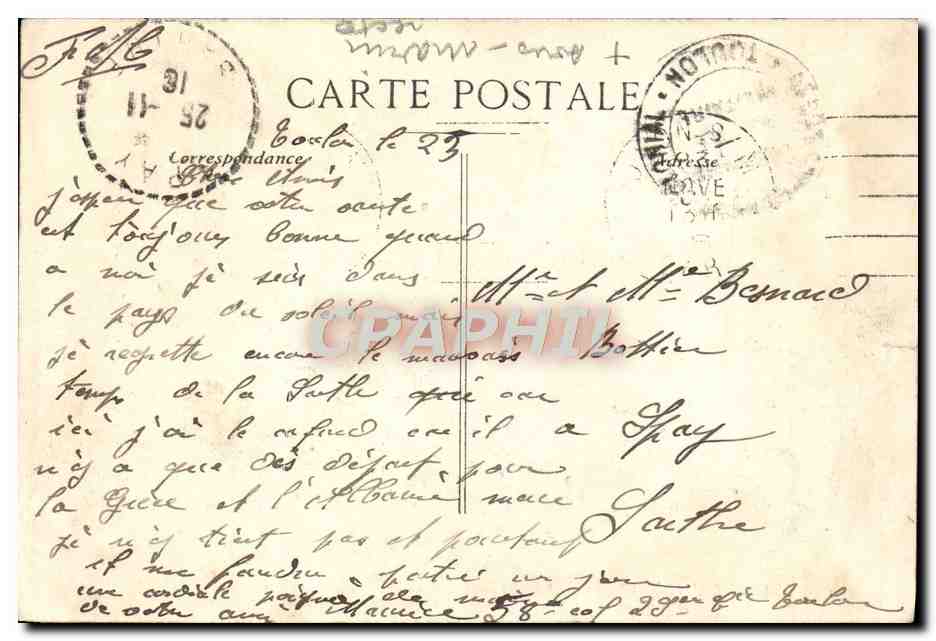 F M
+ sous-marin
resté
CARTE POSTALE
TOULON
25 -11
16
Toulon le 23
Correspondance
Adresse
Cher Amis
j'espere que votre sante
est toujours bonne quand
a moi je suis dans
le pays du soleil mais
je regrette encore le mauvais
temps de la Sarthe car
ici j'ai le cafard car il
n'y a que des départ pour
la Grece et l'Albanie mais
je n'y tient pas et pourtant
il me faudra partir un jour
une cordiale poigné de main
de votre ami Maurice 58 col 2 Toulon
Mr et Me Besnard
Bottier
a Spay
Sarthe
CPAPHIL